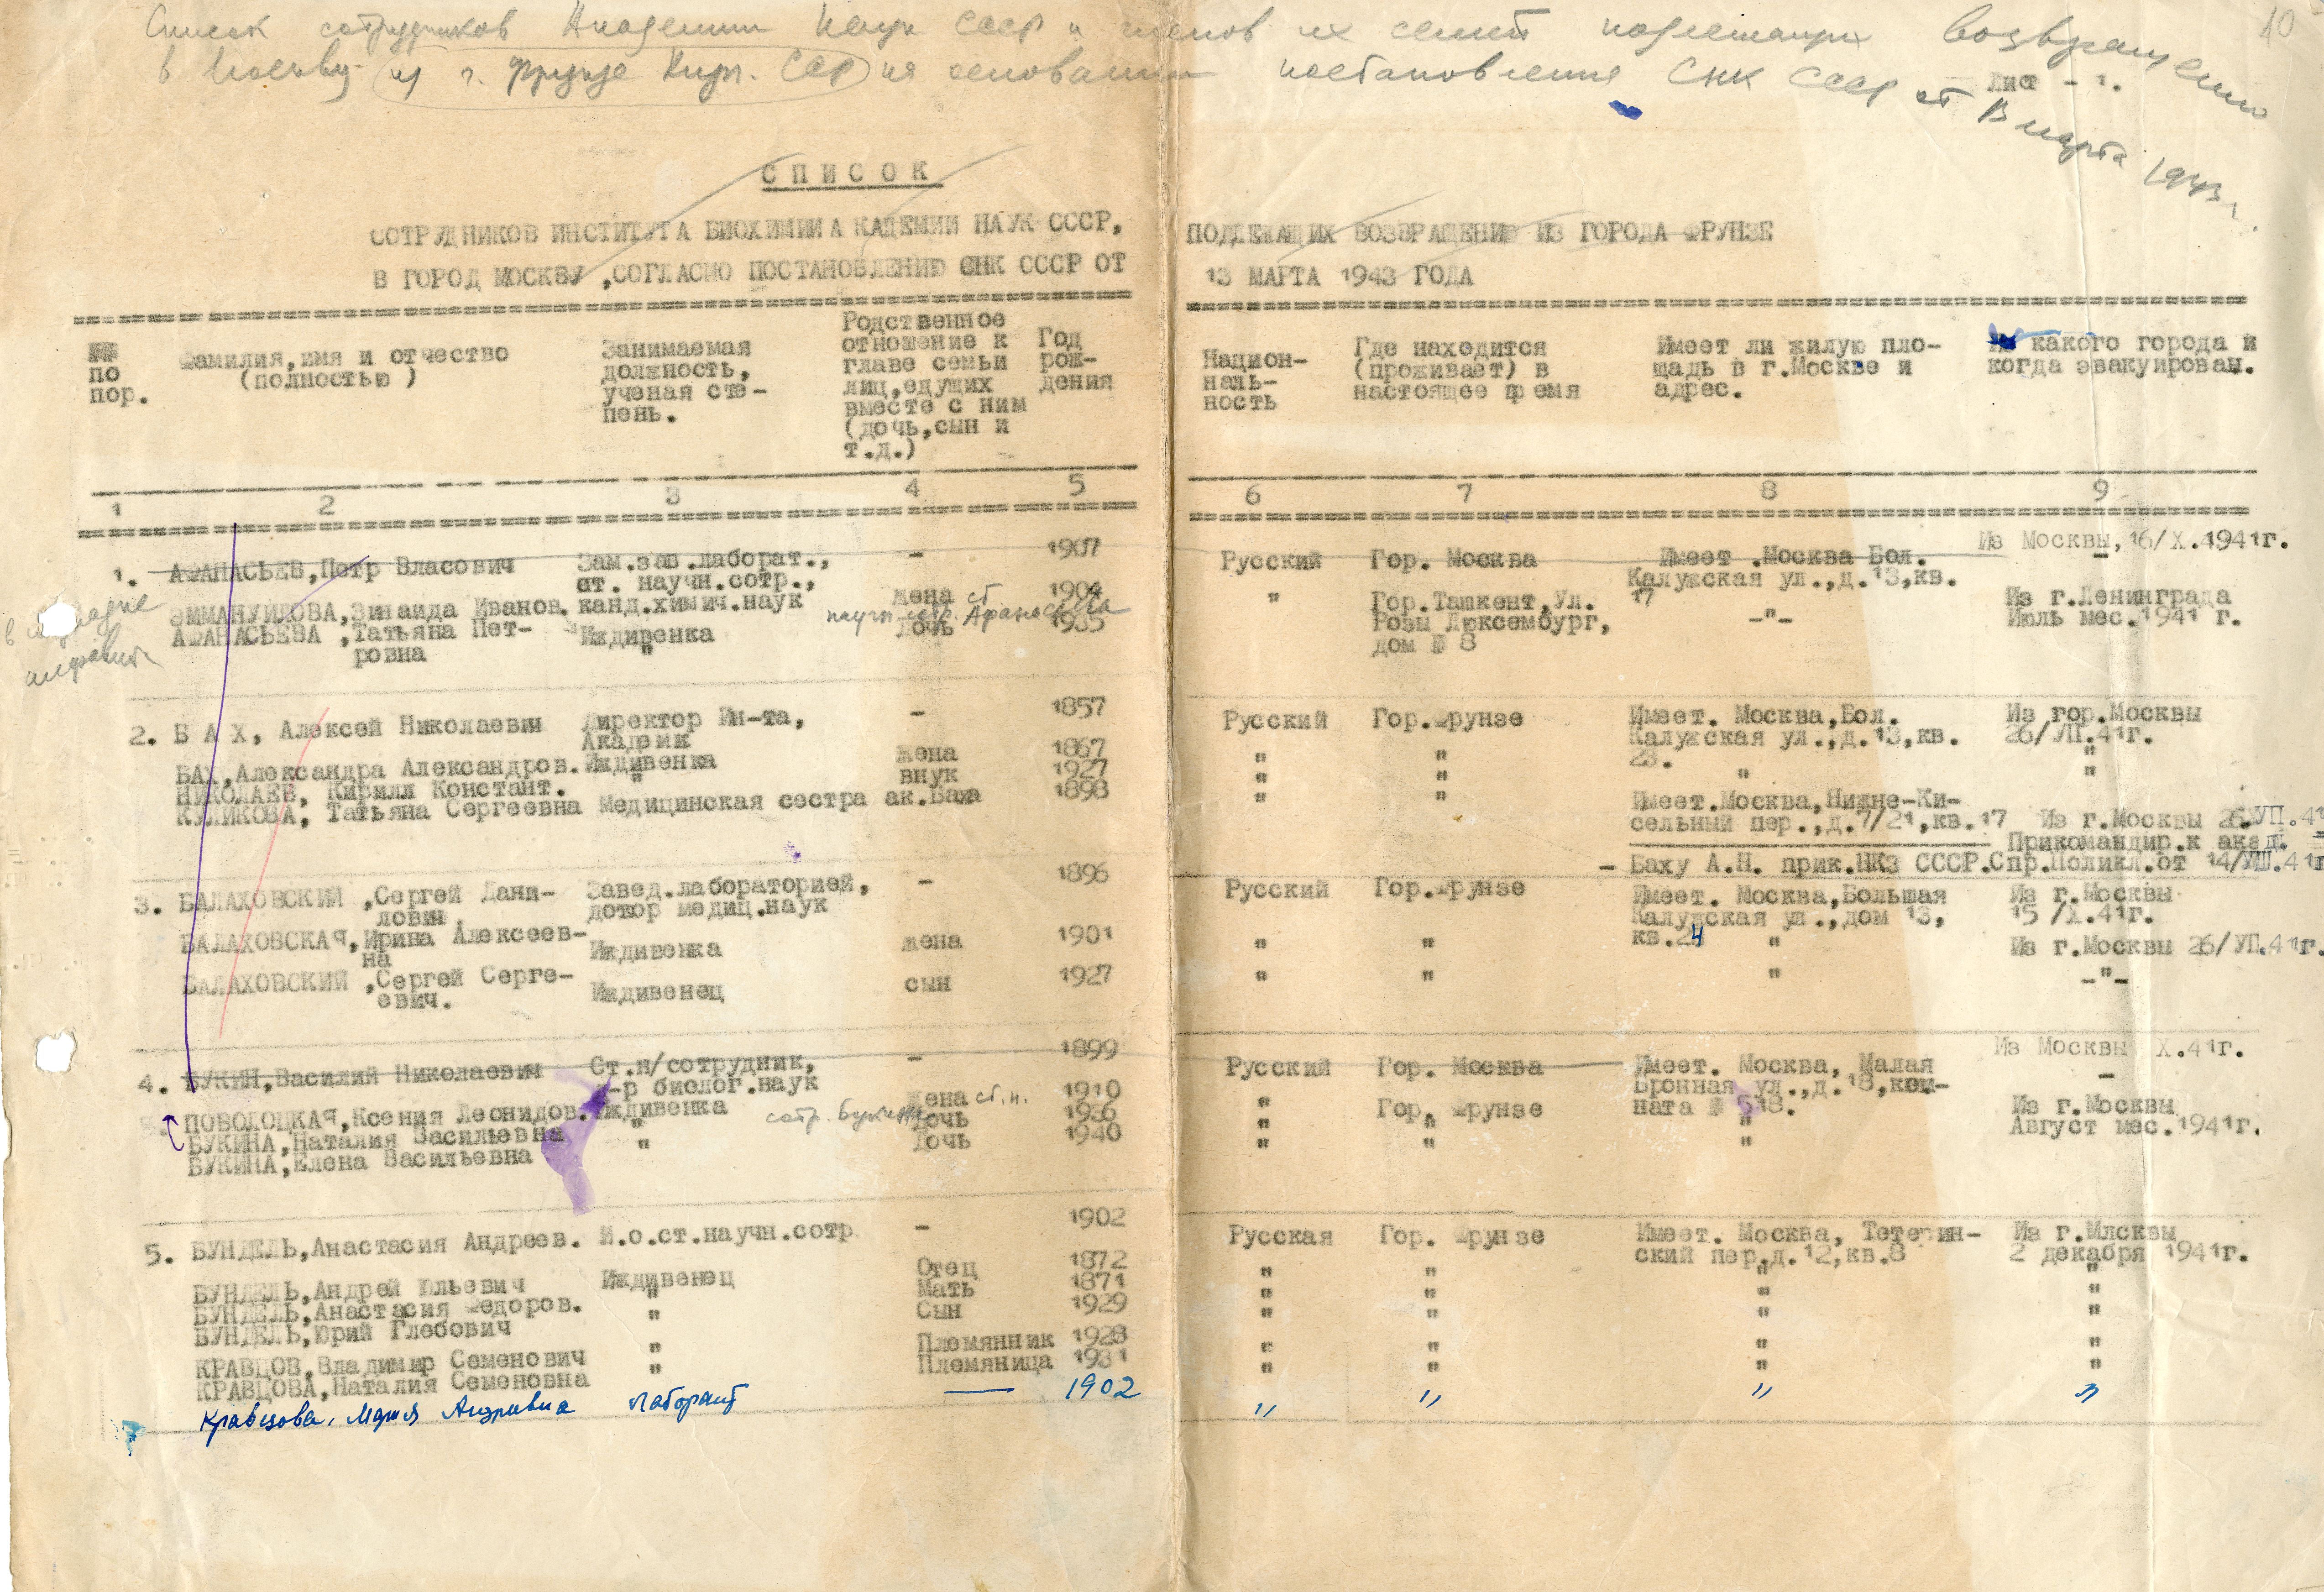 10
Список сотрудников Академии Наук СССР и членов их семей подлежащих возвращению
в Москву из г. Фрунзе Кирг. ССР на основании постановления СНК СССР от 13 марта 1943 г.
Лист - 1.
СПИСОК
СОТРУДНИКОВ ИНСТИТУТА БИОХИМИИ АКАДЕМИИ НАУК СССР, ПОДЛЕЖАЩИХ ВОЗВРАЩЕНИЮ ИЗ ГОРОДА ФРУНЗЕ
В ГОРОД МОСКВУ ,СОГЛАСНО ПОСТАНОВЛЕНИЮ СНК СССР ОТ 13 МАРТА 1943 ГОДА
№№ по пор.
Фамилия,имя и отчество (полностью)
Занимаемая должность, ученая сте-пень.
Родственное отношение к главе семьи лиц,едущих вместе с ним (дочь,сын и т.д.)
Год рож-дения
Национ-наль-ность
Где находится (проживает) в настоящее время
Имеет ли жилую пло-щадь в г.Москве и адрес.
Из какого города и когда эвакуирован.
1 2 3 4 5 6 7 8 9
1. АФАНАСЬЕВ,Петр Власович Зам.зав.лаборат., - 1907 Русский Гор. Москва Имеет .Москва Бол. Из Москвы,16/X.1941г.
ст. научн.сотр., Калужская ул.,д.13,кв. -
ЭММАНУИЛОВА,Зинаида Иванов. канд.химич.наук жена ст. 1904 " Гор.Ташкент,Ул. 17 Из г.Ленинграда
научн. сотр. Афанасьева
АФАНАСЬЕВА ,Татьяна Пет- Иждивенка дочь 1935 Розы Люксембург, -"- Июль мес.1941 г.
ровна " дом № 8
2. Б А Х, Алексей Николаевич Директор Ин-та, - 1857 Русский Гор.Фрунзе Имеет. Москва,Бол. Из гор.Москвы
Академик Калужская ул.,д.13,кв. 26/УП.41г.
БАХ,Александра Александров. Иждивенка жена 1867 " " 23. "
НИКОЛАЕВ, Кирилл Констант. " внук 1927 " " " "
КУЛИКОВА, Татьяна Сергеевна Медицинская сестра ак.Баха 1898 " " Имеет.Москва,Нижне-Ки-
сельный пер.,д.7/21,кв.17 Из г.Москвы 26.УП.41
Прикомандир.к акад.
- Баху А.Н. прик.НКЗ СССР.Спр.Поликл.от 14/УШ.41г
3. БАЛАХОВСКИЙ ,Сергей Дани- Завед.лабораторией, - 1896 Русский Гор.Фрунзе Имеет. Москва,Большая Из г.Москвы
лович доктор медиц.наук Калужская ул.,дом 13, 15/X.41г.
БАЛАХОВСКАЯ,Ирина Алексеев- Иждивенка жена 1901 " " кв.24 " Из г.Москвы 26/УП.41г.
на
БАЛАХОВСКИЙ ,Сергей Серге- Иждивенец сын 1927 " " " -"-
евич.
4. БУКИН,Василий Николаевич Ст.н/сотрудник, - 1899 Русский Гор. Москва Имеет. Москва, Малая Из Москвы X.41г.
д-р биолог.наук Бронная ул.,д.18,ком- -
ПОВОЛОЦКАЯ,Ксения Леонидов. Иждивенка жена ст.н. 1910 " Гор. Фрунзе ната № 518. Из г.Москвы
сотр. Букина
БУКИНА,Наталия Васильевна " дочь 1936 " " " Август мес.1941г.
БУКИНА,Елена Васильевна " Дочь 1940 " " "
5. БУНДЕЛЬ,Анастасия Андреев. И.о.ст.научн.сотр - 1902 Русская Гор. Фрунзе Имеет. Москва, Тетерин- Из г.Млсквы
ский пер.д.12,кв.8 2 декабря 1941г.
БУНДЕЛЬ,Андрей Юльевич Иждивенец Отец 1872 " " " "
БУНДЕЛЬ,Анастасия Федоров. " Мать 1871 " " " "
БУНДЕЛЬ,Юрий Глебович " Сын 1929 " " " "
КРАВЦОВ,Владимир Семенович " Племянник 1928 " " " "
КРАВЦОВА,Наталия Семеновна " Племяница 1931 " " " "
Кравцова, Мария Андревна лаборант — 1902 " " " "